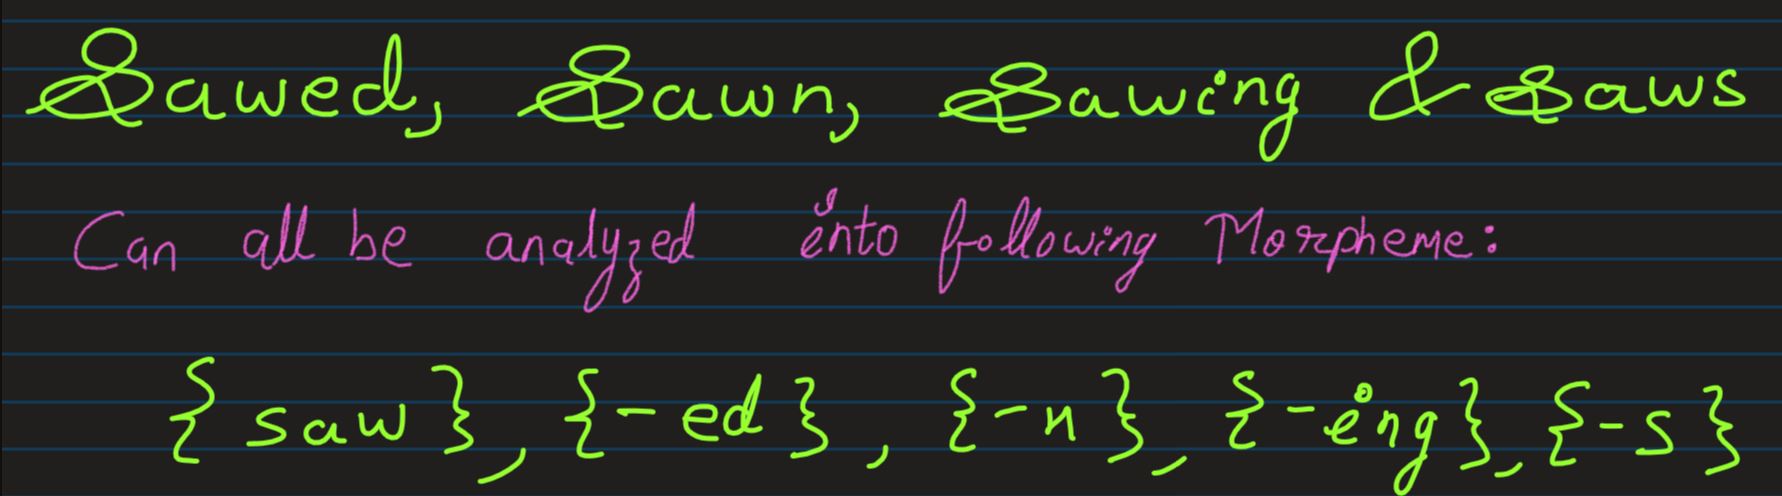 Sawed, Sawn, Sawing & Saws
Can all be analyzed into following Morpheme:
{saw}, {-ed}, {-n}, {-ing}, {-s}